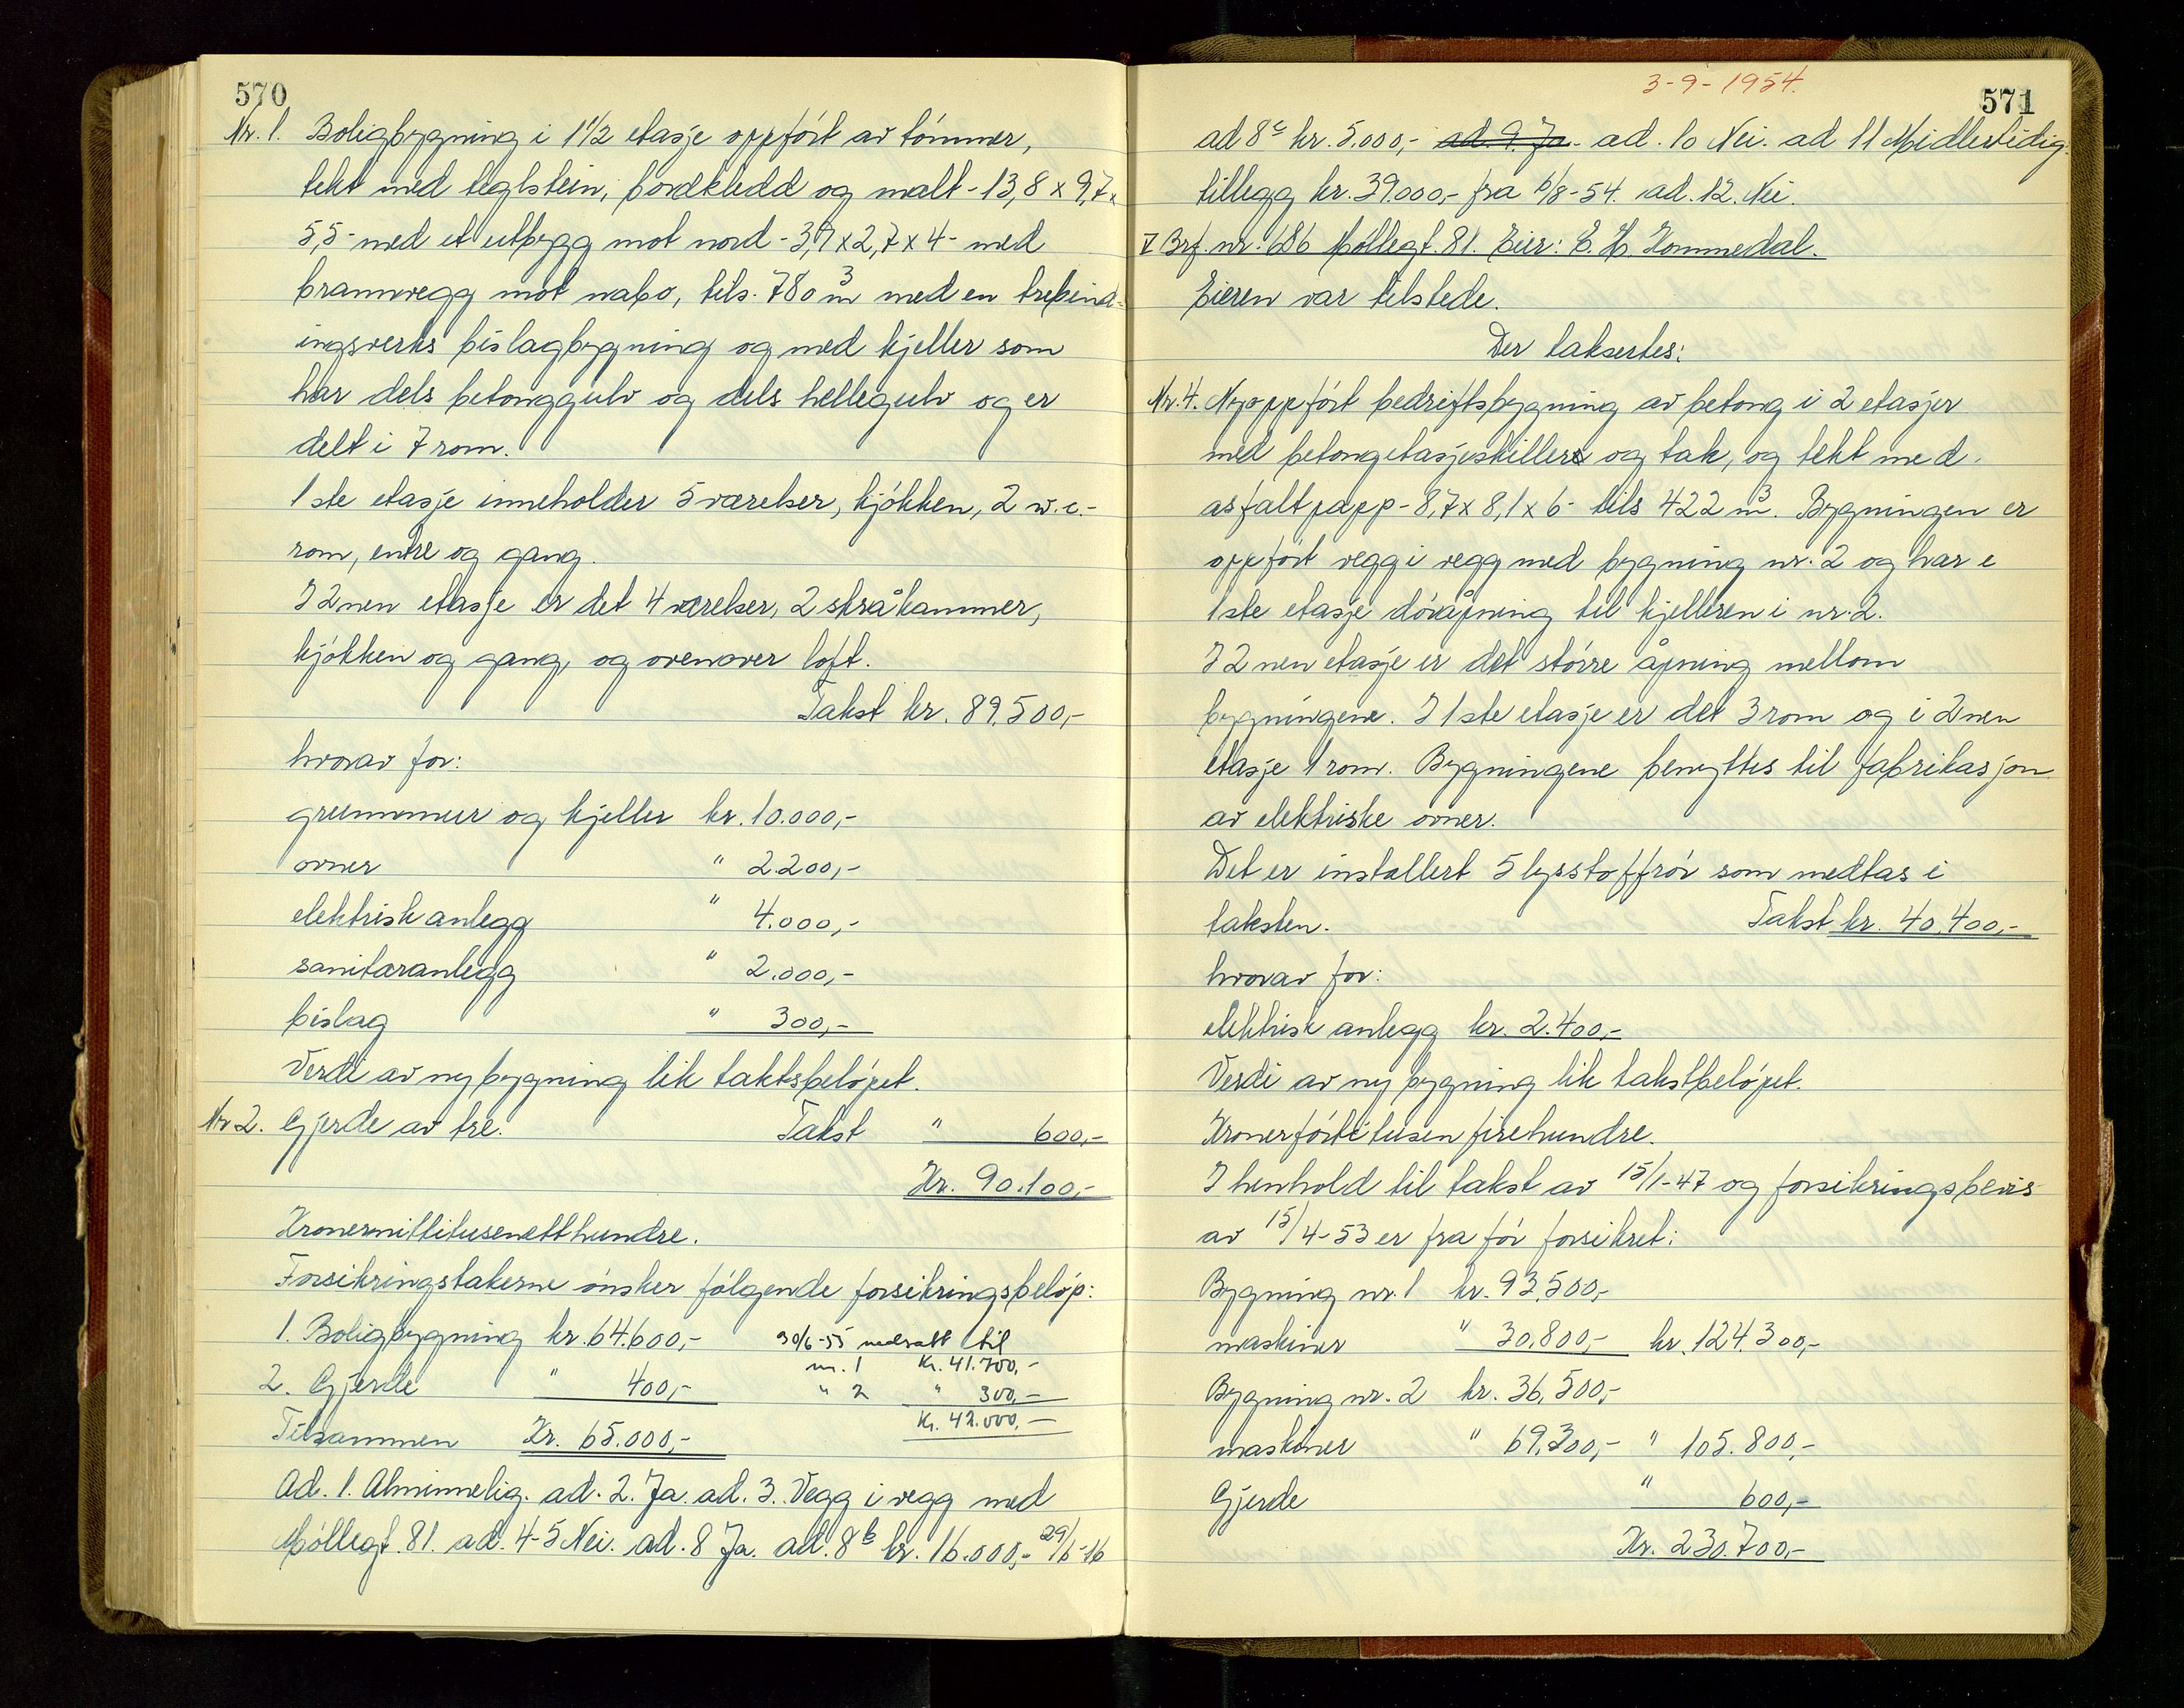 570
Nr. 1. Boligbygning i 1 1/2 etasje oppført av tømmer,
tekt med teglstein, bordkledd og malt - 13,8 x 9,7 x
5,5 - med et utbygg mot nord - 3,7 x 2,7 x 4 - med
brannvegg mot nabo, tils. 780 m³ med en trebind-
ingsverks bislagbygning og med kjeller som
har dels betonggulv og dels hellegulv og er
delt i 7 rom.
1ste etasje inneholder 5 værelser, kjøkken, 2 w.c.-
rom, entre og gang.
I 2nen etasje er det 4 værelser, 2 skråkammer,
kjøkken og gang, og ovenover loft.
Takst kr. 89.500,-
hvorav for:
grunnmur og kjeller kr. 10.000,-
ovner " 2.200,-
elektrisk anlegg " 4.000,-
sanitæranlegg " 2.000,-
bislag " 300,-
Verdi av ny bygning lik taktsbeløpet.
Nr 2. Gjerde av tre. Takst " 600,-
Kr. 90.100,-
Kronernittitusenetthundre.
Forsikringstakerne ønsker følgende forsikringsbeløp:
1. Boligbygning kr. 64.600,- 30/6-55 nedsatt til
nr. 1 Kr. 41.700,-
2. Gjerde " 400,- " 2 " 300,-
Kr. 42.000,-
Tilsammen Kr. 65.000,-
Ad. 1. Alminnelig. ad. 2. Ja. ad. 3. Vegg i vegg med
Møllegt. 81. ad. 4-5 Nei. ad. 8 Ja. ad. 8b kr. 16.000,- 29/6-16
3-9-1954.
571
ad 8c kr. 5.000,- ad. 9. Ja. ad. 10 Nei. ad 11 Midlertidig
tillegg kr. 39.000,- fra 6/8-54. ad. 12. Nei.
Brf. nr. 686 Møllegt. 81. Eier: E. H. Hommedal.
Eieren var tilstede.
Der taksertes:
Nr. 4. Nyoppført bedriftsbygning av betong i 2 etasjer
med betongetasjeskiller og tak, og tekt med
asfaltpapp - 8,7 x 8,1 x 6 - tils 422 m³. Bygningen er
oppført vegg i vegg med bygning nr. 2 og har e
1ste etasje døråpning til kjelleren i nr. 2.
I 2nen etasje er det større åpning mellom
bygningene. I 1ste etasje er det 3 rom og i 2nen
etasje 1 rom. Bygningene benyttes til fabrikasjon
av elektriske ovner.
Det er installert 5 lysstoffrør som medtas i
taksten. Takst kr. 40.400,-
hvorav for:
elektrisk anlegg kr. 2.400,-
Verdi av ny bygning lik takstbeløpet.
Kronerførtitusenfirehundre.
I henhold til takst av 15/1-47 og forsikringsbevis
av 15/4-53 er fra før forsikret:
Bygning nr. 1 kr. 93.500,-
maskiner " 30.800,- kr. 124.300,-
Bygning nr. 2 kr. 36.500,-
maskiner " 69.300,- " 105.800,-
Gjerde " 600,-
Kr. 230.700,-